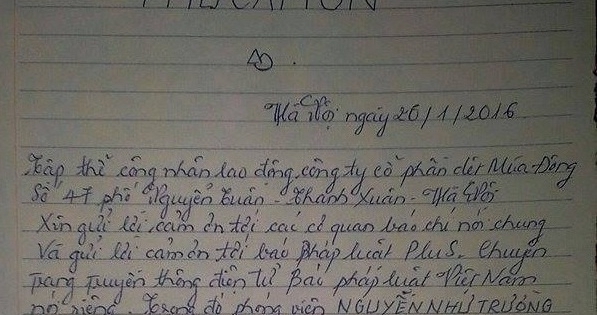 Hà Nội ngày 26/1/2016
Tập thể công nhân lao động công ty cổ phần dệt Mùa Đông
Số 47 phố Nguyễn Tuân - Thanh Xuân - Hà Nội
Xin gửi lời cảm ơn tới các cơ quan báo chí nói chung
Và gửi lời cảm ơn tới báo pháp luật PluS. Chuyên
trang truyền thông điện tử Báo pháp luật Việt Nam
nói riêng. Trong đó phóng viên NGUYỄN NHƯ TRƯỜNG